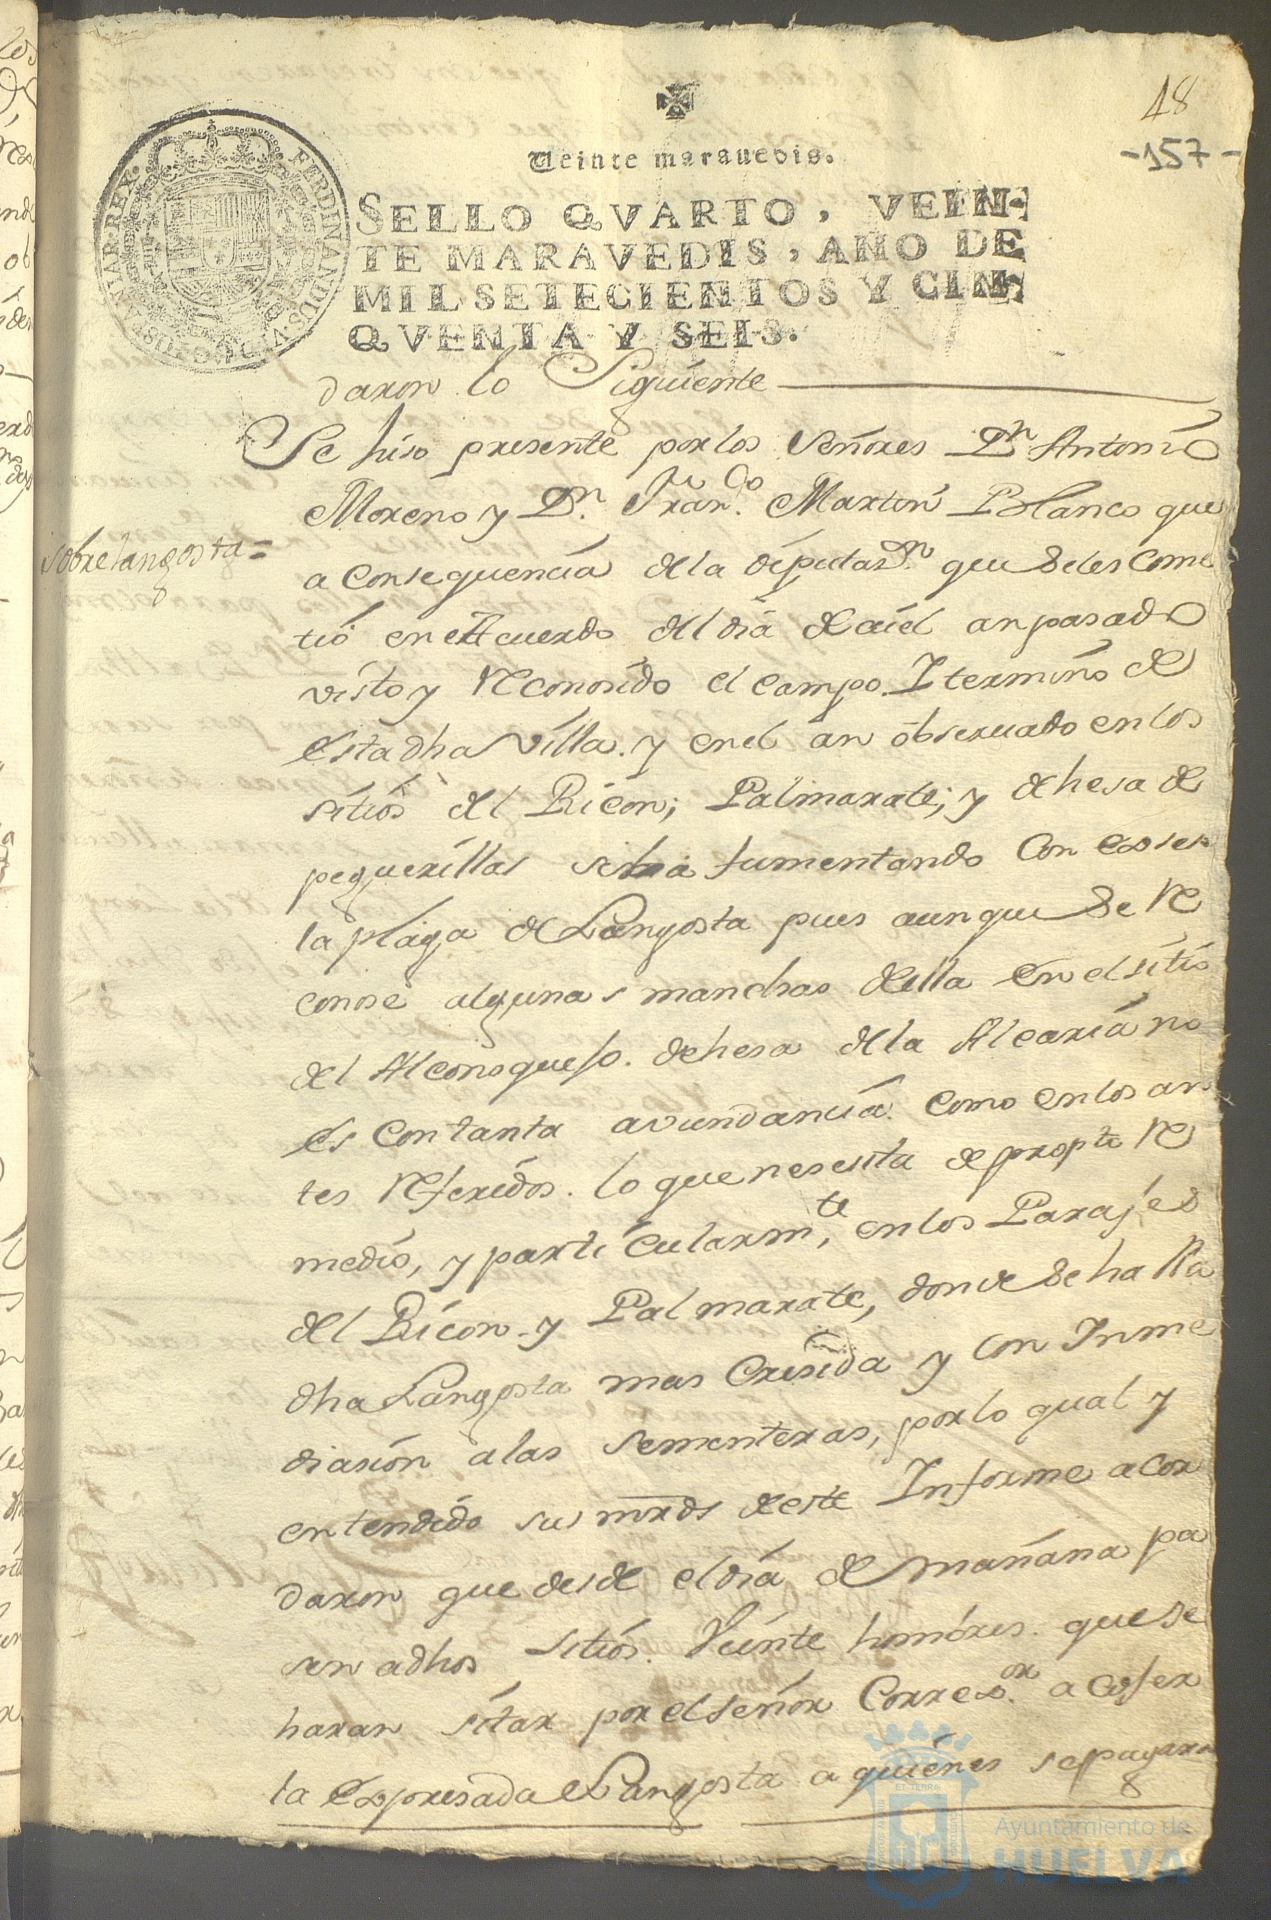 48
-157-
Veinte marauedis.
FERDINANDUS·VI·D·G·
HISPANIAR·REX·
SELLO QVARTO, VEIN-
TE MARAVEDIS, AÑO DE
MIL SETECIENTOS Y CIN-
QVENTA Y SEIS.
daron lo Siguiente
Se hiso presente por los señores Dn Antonio
Moreno y Dn. Franco. Martin Blanco que
sobre langosta =
a consequencia de la diputasn. que se les come
tió en el Acuerdo del dia an pasado
visto y reconosido el campo. Y termino de
esta dha villa. y en el an obseruado en los
sitios del Ricon; Palmarate; y dehesa de
peguerillas se ha fumentando con
la plaga de Langosta pues aunque se re
conose algunas manchas della en el sitio
del Alconoqueso. dehesa de la Alcaria no
es con tanta avundancia. como en los an
tes referidos. lo que nesesita de propto re
medio, y particularmte, en los Parajes
del Ricon y Palmarate, donde se halla
dha Langosta mas cresida y con Inme
diasion a las sementeras, por lo qual y
entendido sus mrds de este Informe acor
daron que desde el dia de mañana pa
sen a dhos sitios. Veinte hombres. que se
haran sitar por el señor Corresor. a coser
la espresada Langosta a quienes se pagara
ET TERRA
Ayuntamiento de
HUELVA